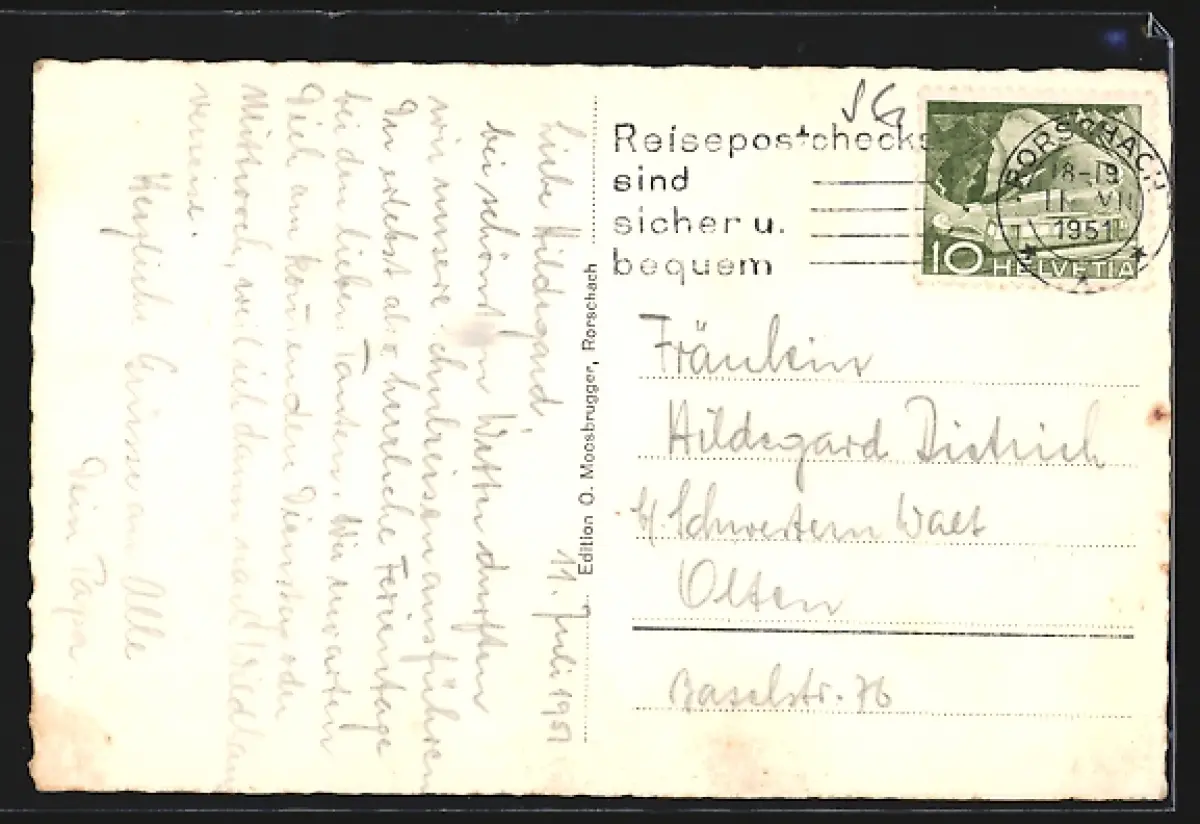 Liebe Hildegard, 11. Juli 1951
bei schönstem Wetter durften
wir unsere Schulreisen ausführen
Du erlebst also herrliche Ferientage
bei den lieben Tanten. Wir erwarten
Dich am kommenden Dienstag oder
Mittwoch, weil ich dann nach
verreise.
Herzliche Grüsse an Alle
Dein Papa
Edition O. Moosbrugger, Rorschach
SG
Reisepostchecks
sind
sicher u.
bequem
RORSCHACH
18-19
11 VII
1951
10 HELVETIA
Fräulein
Hildegard Dietrich
b/ Schwestern Walt
Olten
Baselstr. 76